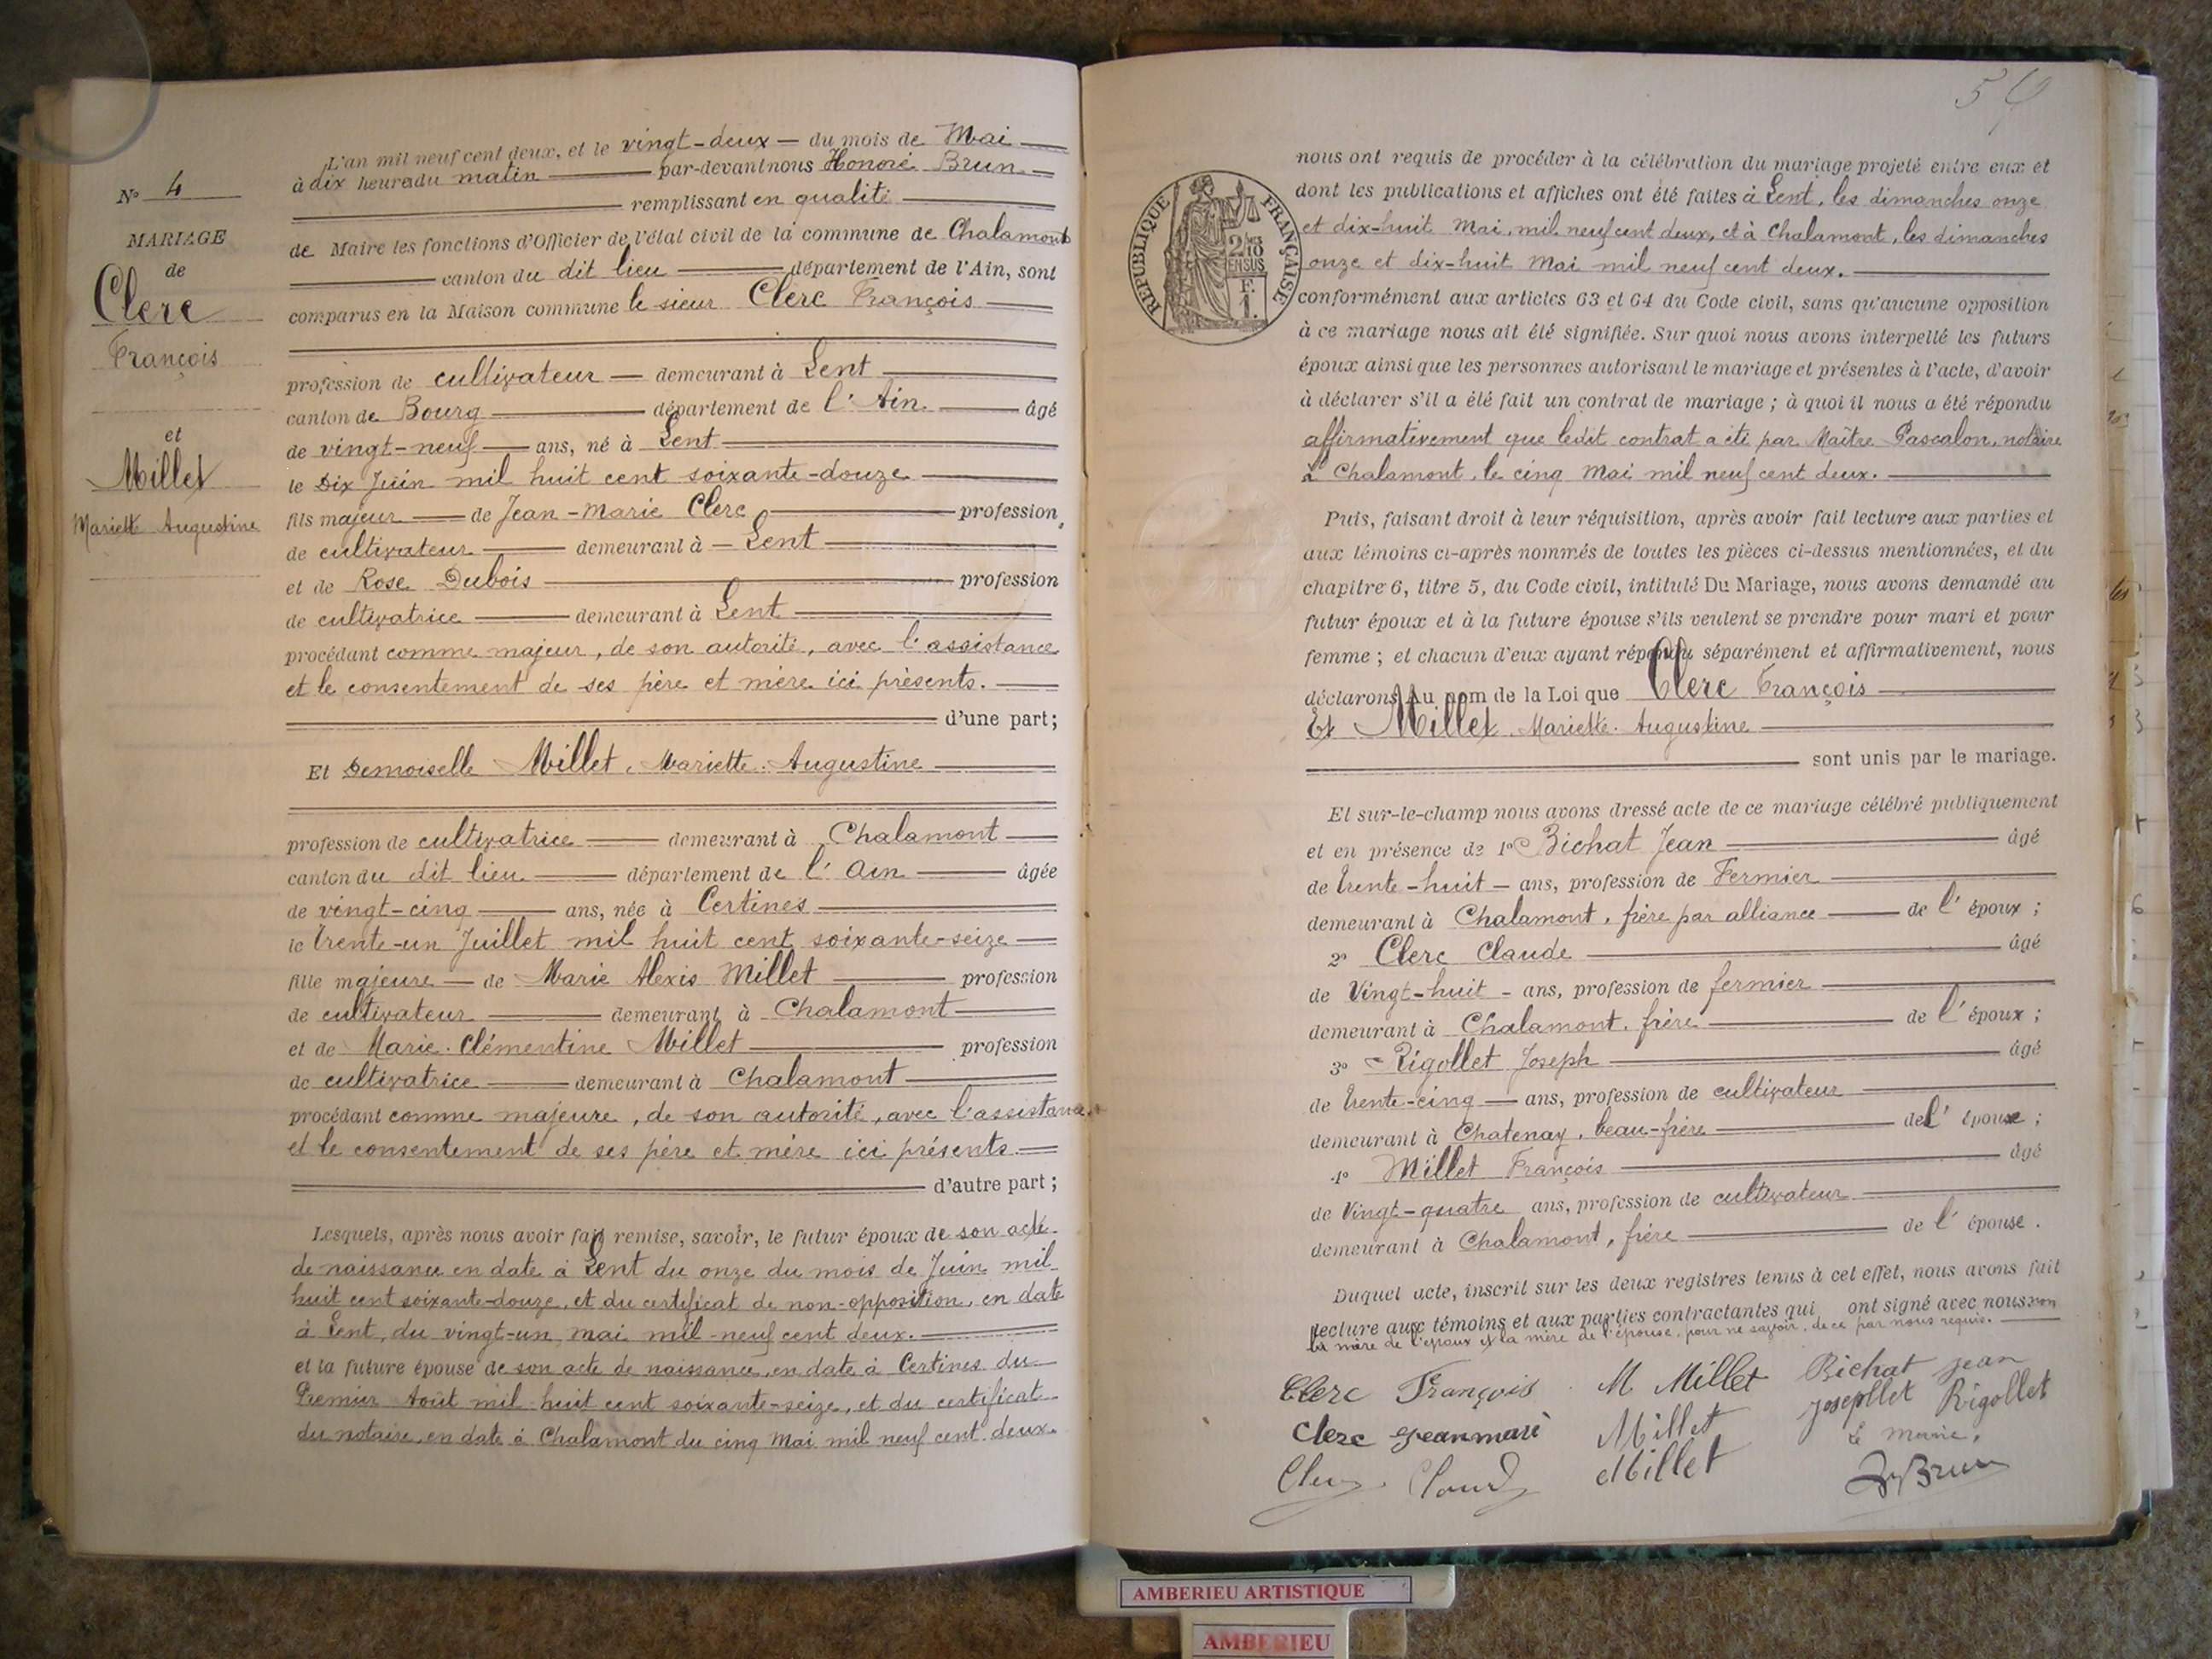 N° 4
MARIAGE
de
Clerc
François
et
Millet
Mariette Augustine
L'an mil neuf cent deux, et le vingt-deux — du mois de Mai
à dix heures du matin par-devant nous Honoré Brun
remplissant en qualité
de Maire les fonctions d'Officier de l'état civil de la commune de Chalamont
canton du dit lieu département de l'Ain, sont
comparus en la Maison commune le sieur Clerc François
profession de cultivateur — demeurant à Lent
canton de Bourg département de l'Ain. âgé
de vingt-neuf ans, né à Lent
le Dix Juin mil huit cent soixante-douze
fils majeur de Jean-Marie Clerc profession
de cultivateur demeurant à — Lent
et de Rose Dubois profession
de cultivatrice demeurant à Lent
procédant comme majeur, de son autorité, avec l'assistance
et le consentement de ses père et mère ici présents.
d'une part;
Et Demoiselle Millet, Mariette Augustine
profession de cultivatrice demeurant à Chalamont
canton du dit lieu département de l'Ain âgée
de vingt-cinq ans, née à Certines
le trente-un Juillet mil huit cent soixante-seize
fille majeure — de Marie Alexis Millet profession
de cultivateur demeurant à Chalamont
et de Marie Clémentine Millet profession
de cultivatrice demeurant à Chalamont
procédant comme majeure, de son autorité, avec l'assistance
et le consentement de ses père et mère ici présents.
d'autre part;
Lesquels, après nous avoir fait remise, savoir, le futur époux de son acte
de naissance en date à Lent du onze du mois de Juin mil
huit cent soixante-douze, et du certificat de non-opposition, en date
à Lent, du vingt-un mai mil-neuf cent deux.
et la future épouse de son acte de naissance, en date à Certines du
Premier Août mil huit cent soixante-seize, et du certificat
du notaire, en date à Chalamont du cinq Mai mil neuf cent deux.
REPUBLIQUE FRANÇAISE
2/10
EN SUS
F.
1.
nous ont requis de procéder à la célébration du mariage projeté entre eux et
dont les publications et affiches ont été faites à Lent, les dimanches onze
et dix-huit Mai, mil neuf cent deux, et à Chalamont, les dimanches
onze et dix-huit Mai mil neuf cent deux.
conformément aux articles 63 et 64 du Code civil, sans qu'aucune opposition
à ce mariage nous ait été signifiée. Sur quoi nous avons interpellé les futurs
époux ainsi que les personnes autorisant le mariage et présentes à l'acte, d'avoir
à déclarer s'il a été fait un contrat de mariage ; à quoi il nous a été répondu
affirmativement que ledit contrat a été par Maître Pascalon, notaire
à Chalamont, le cinq Mai mil neuf cent deux.
Puis, faisant droit à leur réquisition, après avoir fait lecture aux parties et
aux témoins ci-après nommés de toutes les pièces ci-dessus mentionnées, et du
chapitre 6, titre 5, du Code civil, intitulé Du Mariage, nous avons demandé au
futur époux et à la future épouse s'ils veulent se prendre pour mari et pour
femme ; et chacun d'eux ayant répondu séparément et affirmativement, nous
déclarons Au nom de la Loi que Clerc François
Et Millet Mariette Augustine
sont unis par le mariage.
Et sur-le-champ nous avons dressé acte de ce mariage célébré publiquement
et en présence de 1° Bichat Jean âgé
de trente-huit — ans, profession de Fermier
demeurant à Chalamont, frère par alliance de l'époux ;
2° Clerc Claude âgé
de Vingt-huit - ans, profession de fermier
demeurant à Chalamont, frère de l'époux ;
3° Rigollet Joseph âgé
de trente-cinq — ans, profession de cultivateur
demeurant à Chatenay, beau-frère de l'épouse ;
4° Millet François âgé
de Vingt-quatre ans, profession de cultivateur
demeurant à Chalamont, frère de l'épouse.
Duquel acte, inscrit sur les deux registres tenus à cet effet, nous avons fait
lecture aux témoins et aux parties contractantes qui ont signé avec nous non
la mère de l'époux et la mère de l'épouse, pour ne savoir, de ce par nous requis.
Clerc François M Millet Bichat Jean
Clerc Jeanmarie Millet Josepllet Rigollet
Clerc Claude Millet Le maire,
H Brun
AMBERIEU ARTISTIQUE
AMBERIEU